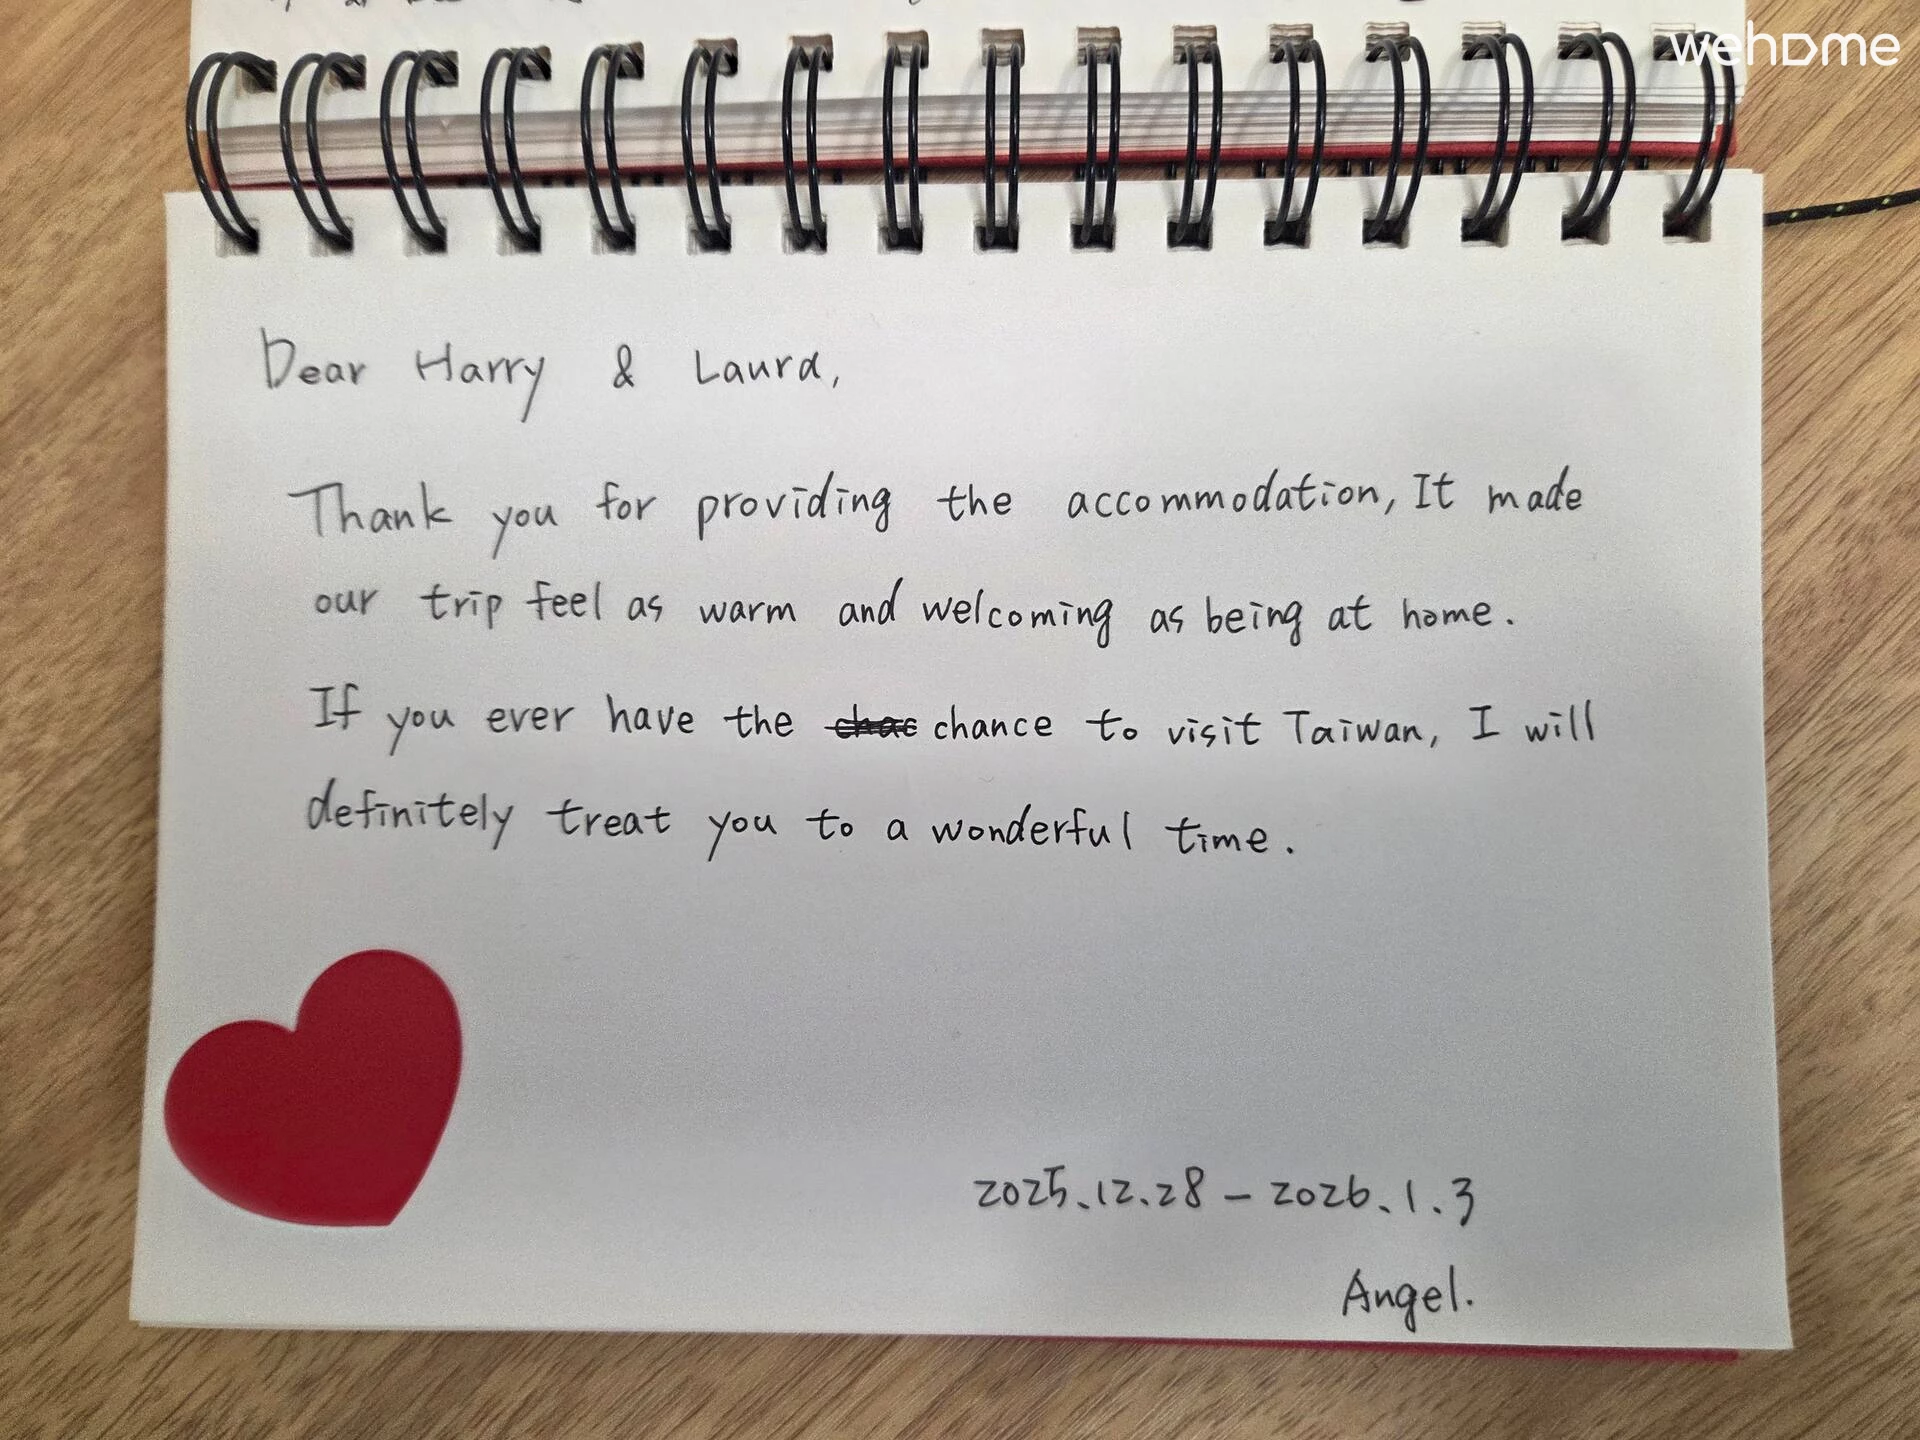 wehome
Dear Harry & Laura,
Thank you for providing the accommodation, It made
our trip feel as warm and welcoming as being at home.
If you ever have the chac chance to visit Taiwan, I will
definitely treat you to a wonderful time.
2025.12.28 - 2026.1.3
Angel.